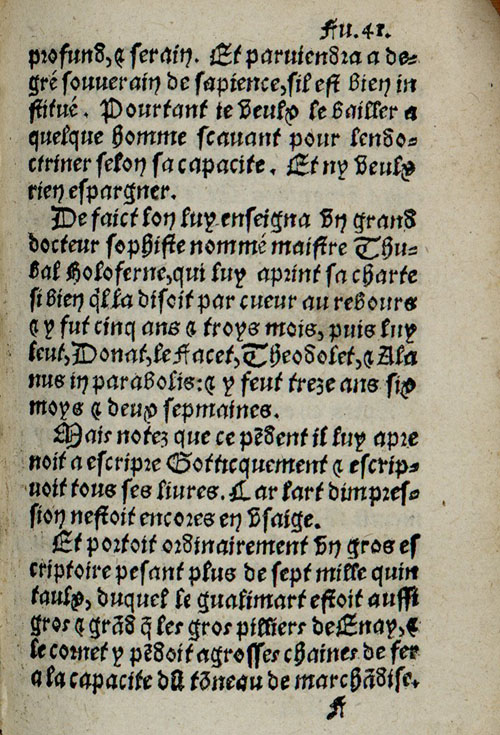 Fu.41.
profund, & serain. Et paruiendra a de-
gré souuerain de sapience, sil est bien in
stitué. Pourtant ie veulx le bailler a
quelque homme scauant pour lendo-
ctriner selon sa capacite. Et ny veulx
rien espargner.
De faict lon luy enseigna vn grand
docteur sophiste nommé maistre Thu-
bal Holoferne, qui luy aprint sa charte
si bien q̃l la disoit par cueur au rebours
& y fut cinq ans & troys mois, puis luy
leut, Donat, le Facet, Theodolet, & Ala
nus in parabolis: & y feut treze ans six
moys & deux sepmaines.
Mais notez que ce pẽdent il luy apre
noit a escripre Gotticquement & escrip-
uoit tous ses liures. Car lart dimpres-
sion nestoit encores en vsaige.
Et portoit ordinairement vn gros es
criptoire pesant plus de sept mille quin
taulx, duquel le gualimart estoit aussi
gros & grãd q̃ les gros pilliers de Enay, &
le cornet y pẽdoit a grosses chaines de fer
a la capacite dũ tõneau de marchãdise.
F